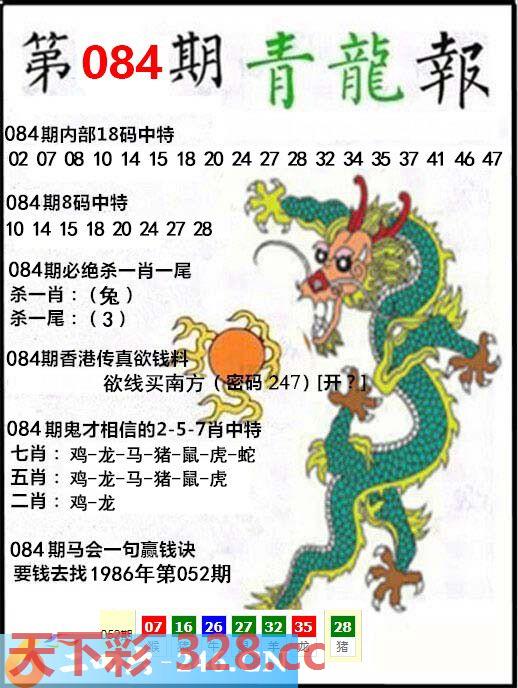 第084期青龍報
084期内部18码中特
02 07 08 10 14 15 18 20 24 27 28 32 34 35 37 41 46 47
084期8码中特
10 14 15 18 20 24 27 28
084期必绝杀一肖一尾
杀一肖：（兔）
杀一尾：（3）
084期香港传真欲钱料
欲线买南方（密码247）[开？]
084期鬼才相信的2-5-7肖中特
七肖：鸡-龙-马-猪-鼠-虎-蛇
五肖：鸡-龙-马-猪-鼠-虎
二肖：鸡-龙
084期马会一句赢钱诀
要钱去找1986年第052期
07 16 26 27 32 35 28
猴 牛 羊 龙 猪
天下彩-328.cc